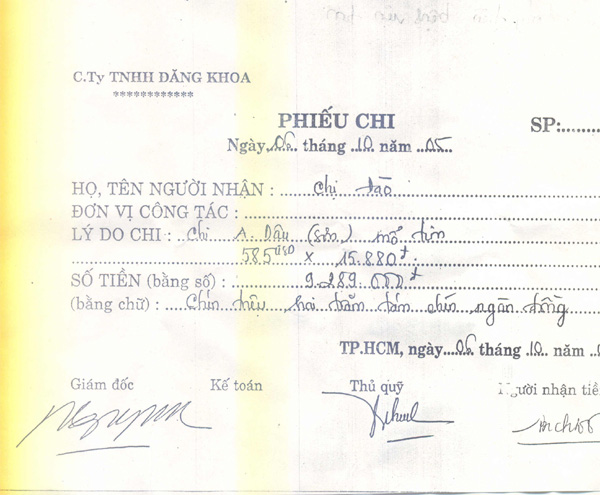 C.Ty TNHH ĐĂNG KHOA
************
PHIẾU CHI
SP:.........
Ngày..06. tháng ..10. năm ..05..
HỌ, TÊN NGƯỜI NHẬN : Chị Đào
ĐƠN VỊ CÔNG TÁC :
LÝ DO CHI : Chi A. Dậu (Sơn) mổ tim
585 USD x 15.880đ
SỐ TIỀN (bằng số) : 9.289.000đ
(bằng chữ) : Chín triệu hai trăm tám chín ngàn đồng
TP.HCM, ngày..06 tháng ..10.. năm ..0
Giám đốc Kế toán Thủ quỹ Người nhận tiề